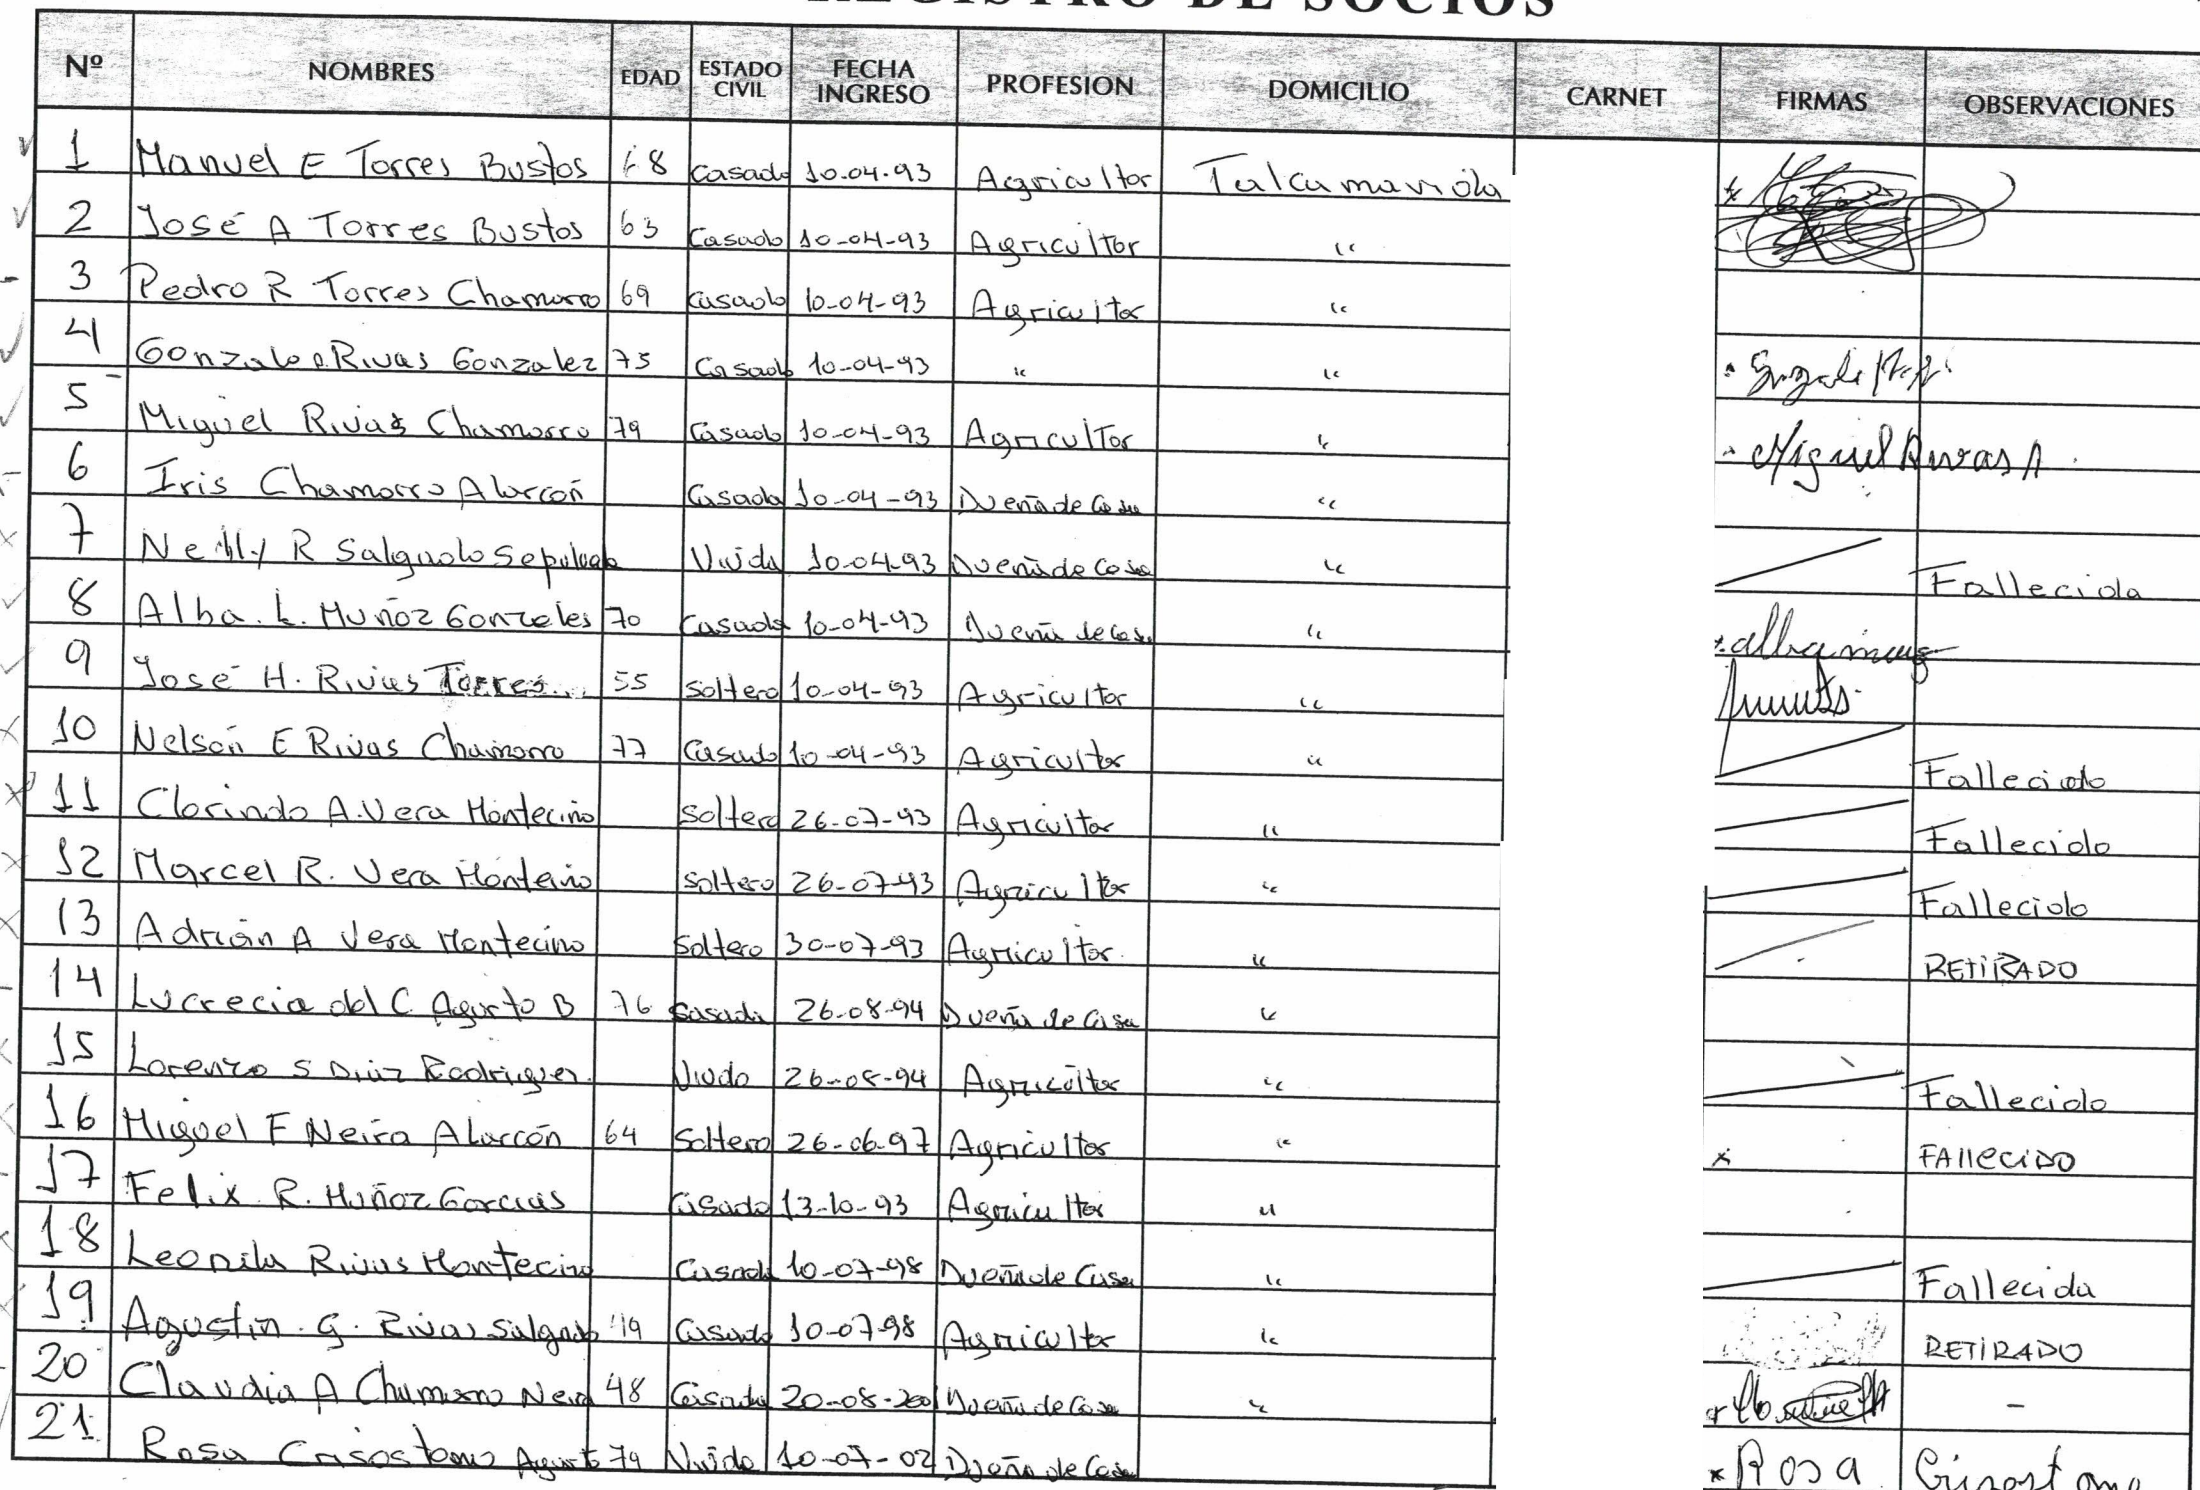 REGISTRO DE SOCIOS
Nº NOMBRES EDAD ESTADO CIVIL FECHA INGRESO PROFESION DOMICILIO CARNET FIRMAS OBSERVACIONES
1 Manuel E Torres Bustos 68 Casado 10-04-93 Agricultor Talcamavida
2 José A Torres Bustos 63 Casado 10-04-93 Agricultor "
3 Pedro R Torres Chamorro 69 Casado 10-04-93 Agricultor "
4 Gonzalo Rivas Gonzalez 75 Casado 10-04-93 " "
5 Miguel Rivas Chamorro 79 Casado 10-04-93 Agricultor " Miguel Rivas
6 Iris Chamorro Alarcón Casada 10-04-93 Dueña de Casa "
7 Nelly R Salgado Sepulveda Viuda 10-04-93 Dueña de Casa " Fallecida
8 Alba. L. Muñoz Gonzales 70 Casada 10-04-93 Dueña de Casa "
9 José H. Rivas Torres 55 Soltero 10-04-93 Agricultor "
10 Nelson E Rivas Chamorro 77 Casado 10-04-93 Agricultor " Fallecido
11 Clorindo A. Vera Montecino Soltero 26-07-93 Agricultor " Fallecido
12 Marcel R. Vera Montecino Soltero 26-07-93 Agricultor " Fallecido
13 Adrián A Vera Montecino Soltero 30-07-93 Agricultor " RETIRADO
14 Lucrecia del C Agurto B 76 Casada 26-08-94 Dueña de Casa "
15 Lorenzo S Diaz Rodriguez Viudo 26-08-94 Agricultor " Fallecido
16 Miguel F Neira Alarcón 64 Soltero 26-06-97 Agricultor " x FALLECIDO
17 Felix R. Muñoz Casado 13-10-93 Agricultor "
18 Leonila Rivas Montecino Casada 10-07-98 Dueña de Casa " Fallecida
19 Agustin. G. Rivas Salgado 49 Casado 10-07-98 Agricultor " RETIRADO
20 Claudia A Chamorro Neira 48 Casada 20-08-2001 Dueña de Casa " -
21 Rosa Crisostomo Agurto 79 Viuda 10-07-02 Dueña de Casa x Rosa